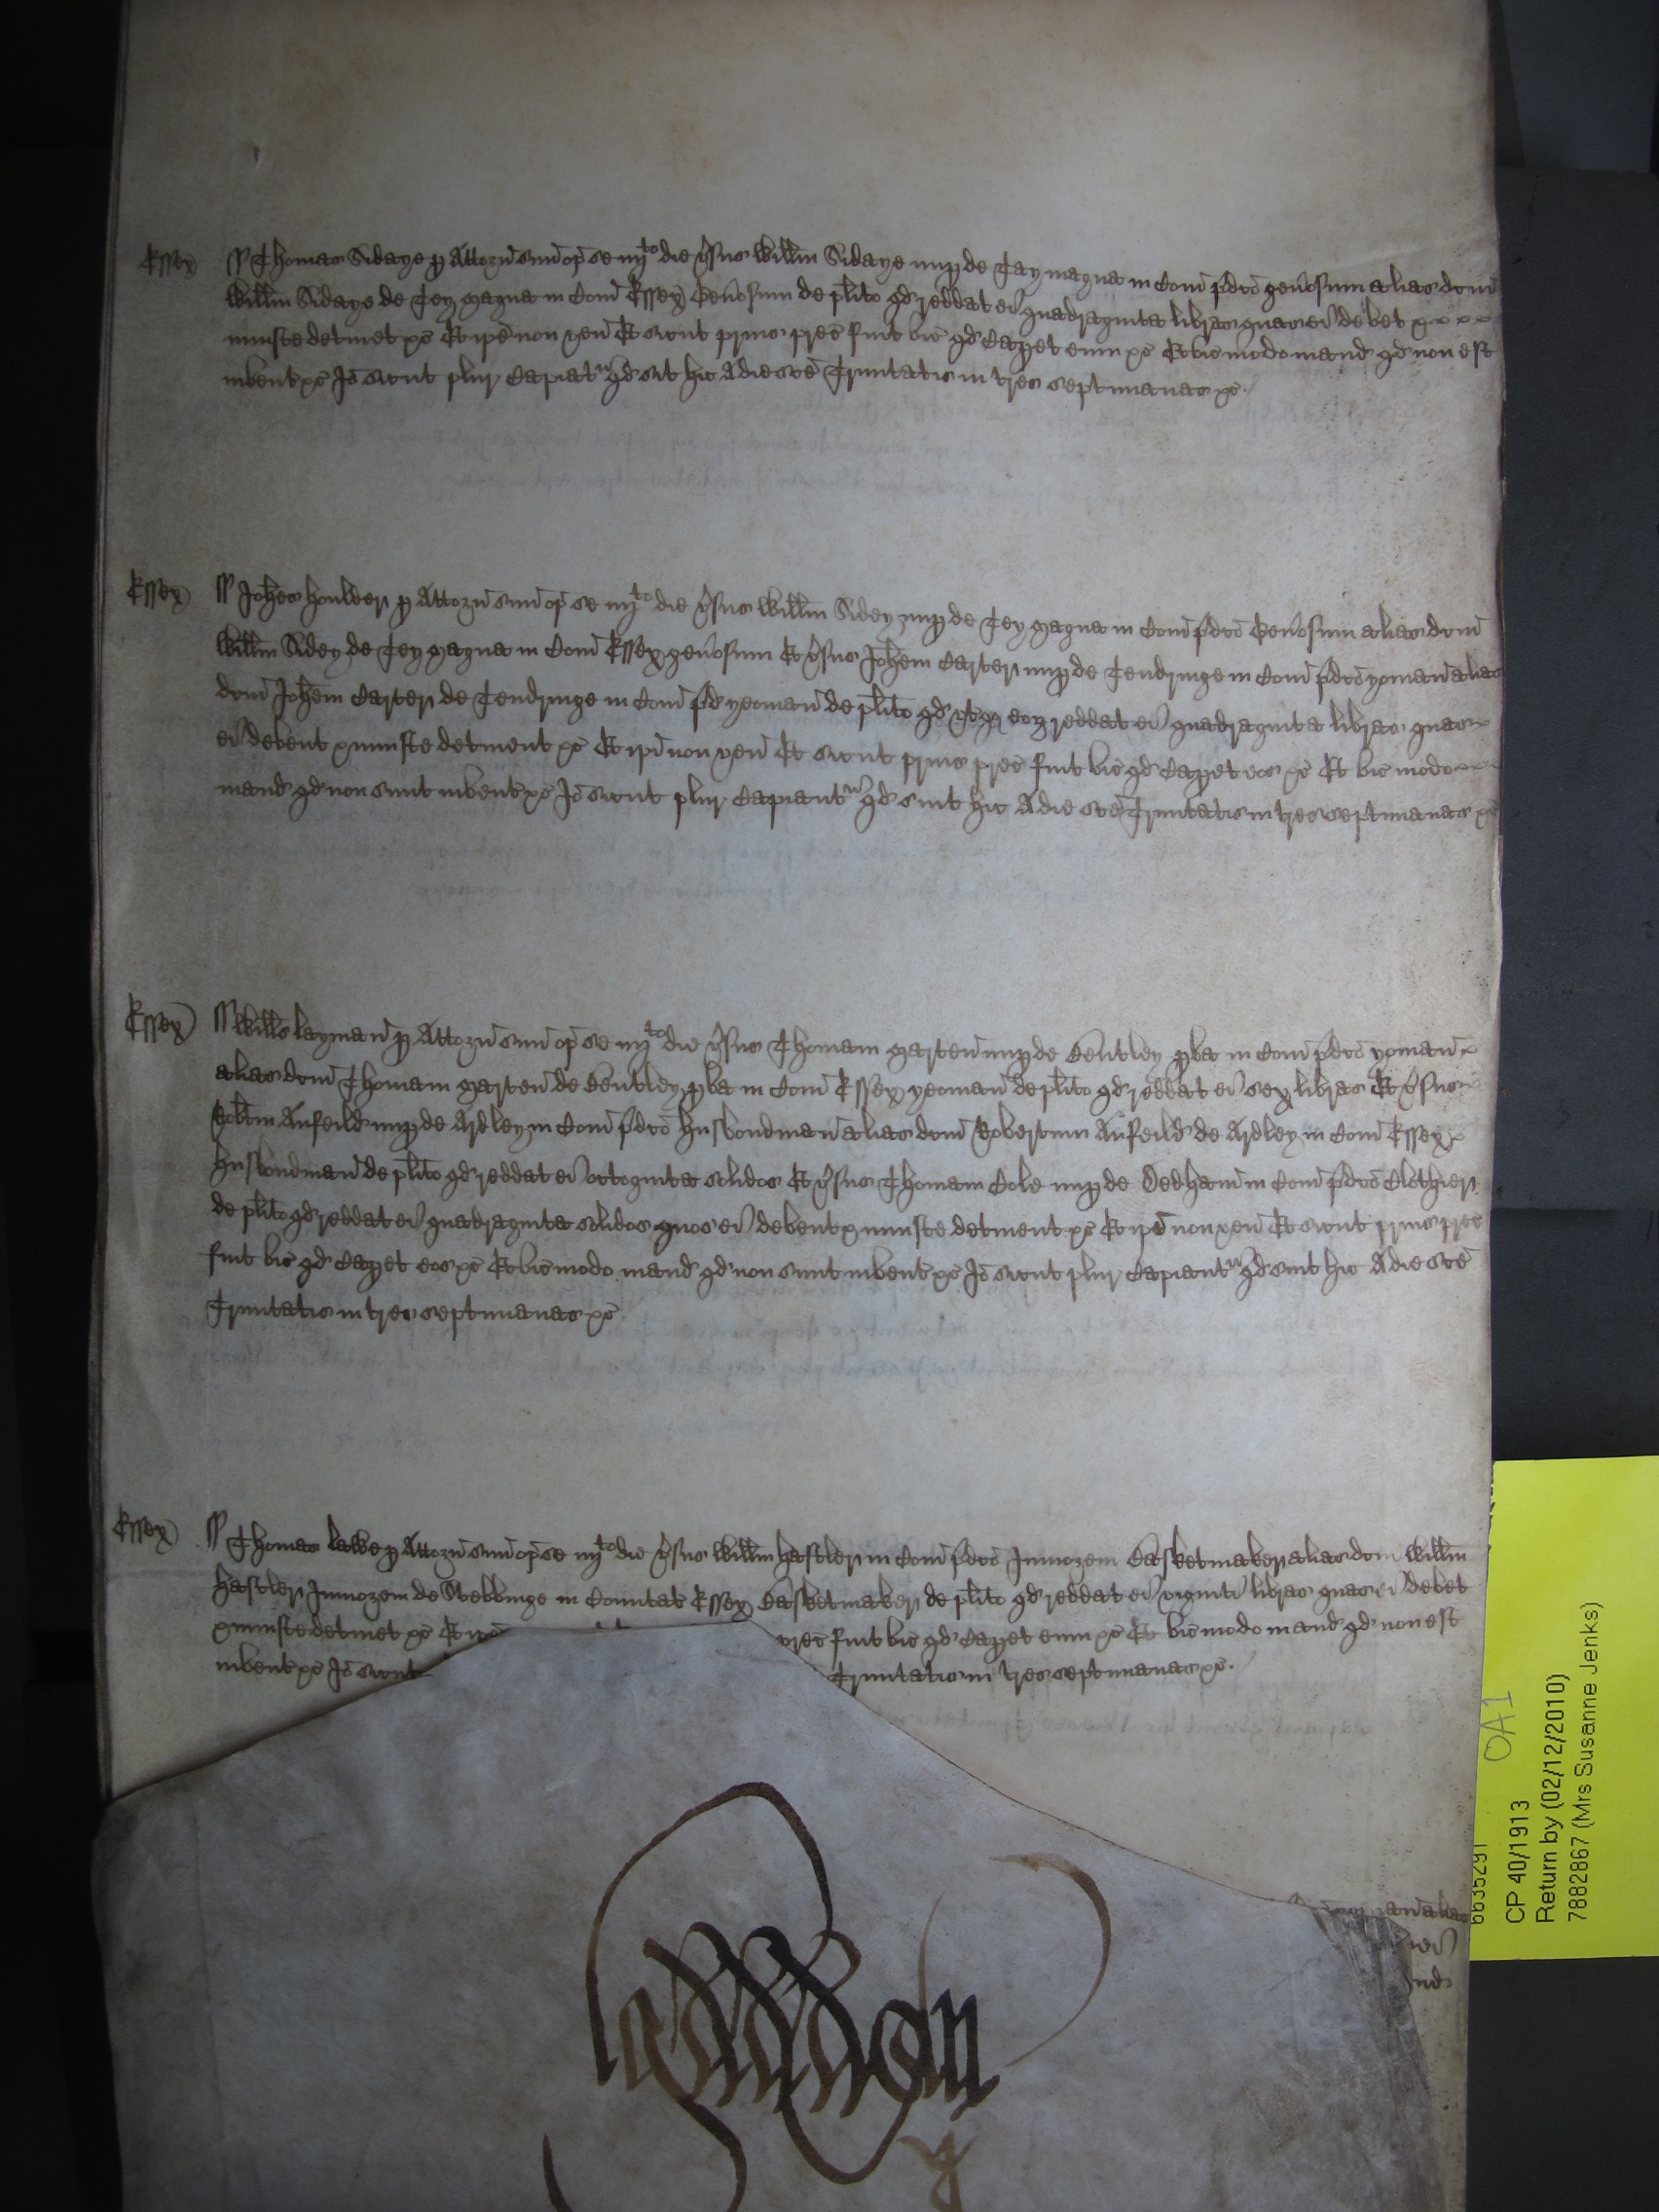 Essex
ss Thomas Sidaye p Attorn suu op se iiijto die vsus Willm Sidaye nup de Tay magna in Com pdco genosum alias dcm
Willm Sidaye de Tey magna in Com Essex Genosum de plito qd reddat ei quadraginta libras quas ei debet
iniuste detinet &c Et ipe non ven Et sicut prius prec fuit vic qd Capet eum &c Et vic modo mand qd non est
invent &c Io sicut plur Capiatr qd sit hic A die sce Trinitatis in tres septimanas &c
Essex
ss Johes houlder p Attorn suu op se iiijto die vsus Willm Sidey nup de Tey magna in Com pdco Genosum alias dcm
Willm Sidey de Tey magna in Com Essex genosum Et vsus Johem Carter nup de Tendringe in Com pdco yoman alias
dcm Johem Carter de Tendringe in Com pd yeoman de plito qd utq eoz reddat ei quadraginta libras quas
ei debent & iniuste detinent &c Et ipi non ven Et sicut prius prec fuit vic qd Capet eos &c Et vic modo
mand qd non sunt invent &c Io sicut plur Capiantr qd sint hic A die sce Trinitatis in tres septimanas &c
Essex
ss Willms layman p Attorn suu op se iiijto die vsus Thomam garten nup de Bentley pva in Com pdco yoman
alias dcm Thomam garten de Bentley pva in Com Essex yeoman de plito qd reddat ei sex libras Et vsus
Robtm Anfeild nup de Ardley in Com pdco husbondman alias dcm Robertum Anfeild de Ardley in Com Essex
husbondman de plito qd reddat ei octoginta solidos Et vsus Thomam Cole nup de Dedham in Com pdco Clothier
de plito qd reddat ei quadraginta solidos quos ei debent & iniuste detinent &c Et ipi non ven Et sicut prius prec
fuit vic qd Capet eos &c Et vic modo mand qd non sunt invent &c Io sicut plur Capiantr qd sint hic A die sce
Trinitatis in tres septimanas &c
Essex
ss Thomas lawe p Attorn suu op se iiijto die vsus Willm hastler in Com pdco Juniorem Basketmaker alias dcm Willm
hastler Juniorem de Stebbinge in Comitat Essex Basketmaker de plito qd reddat ei viginti libras quas ei debet
& iniuste detinet &c Et ipe prec fuit vic qd Capet eum &c Et vic modo mand qd non est
invent &c Io sicut Trinitatis in tres septimanas &c
6635291
CP 40/1913
OA1
Return by (02/12/2010)
7882867 (Mrs Susanne Jenks)